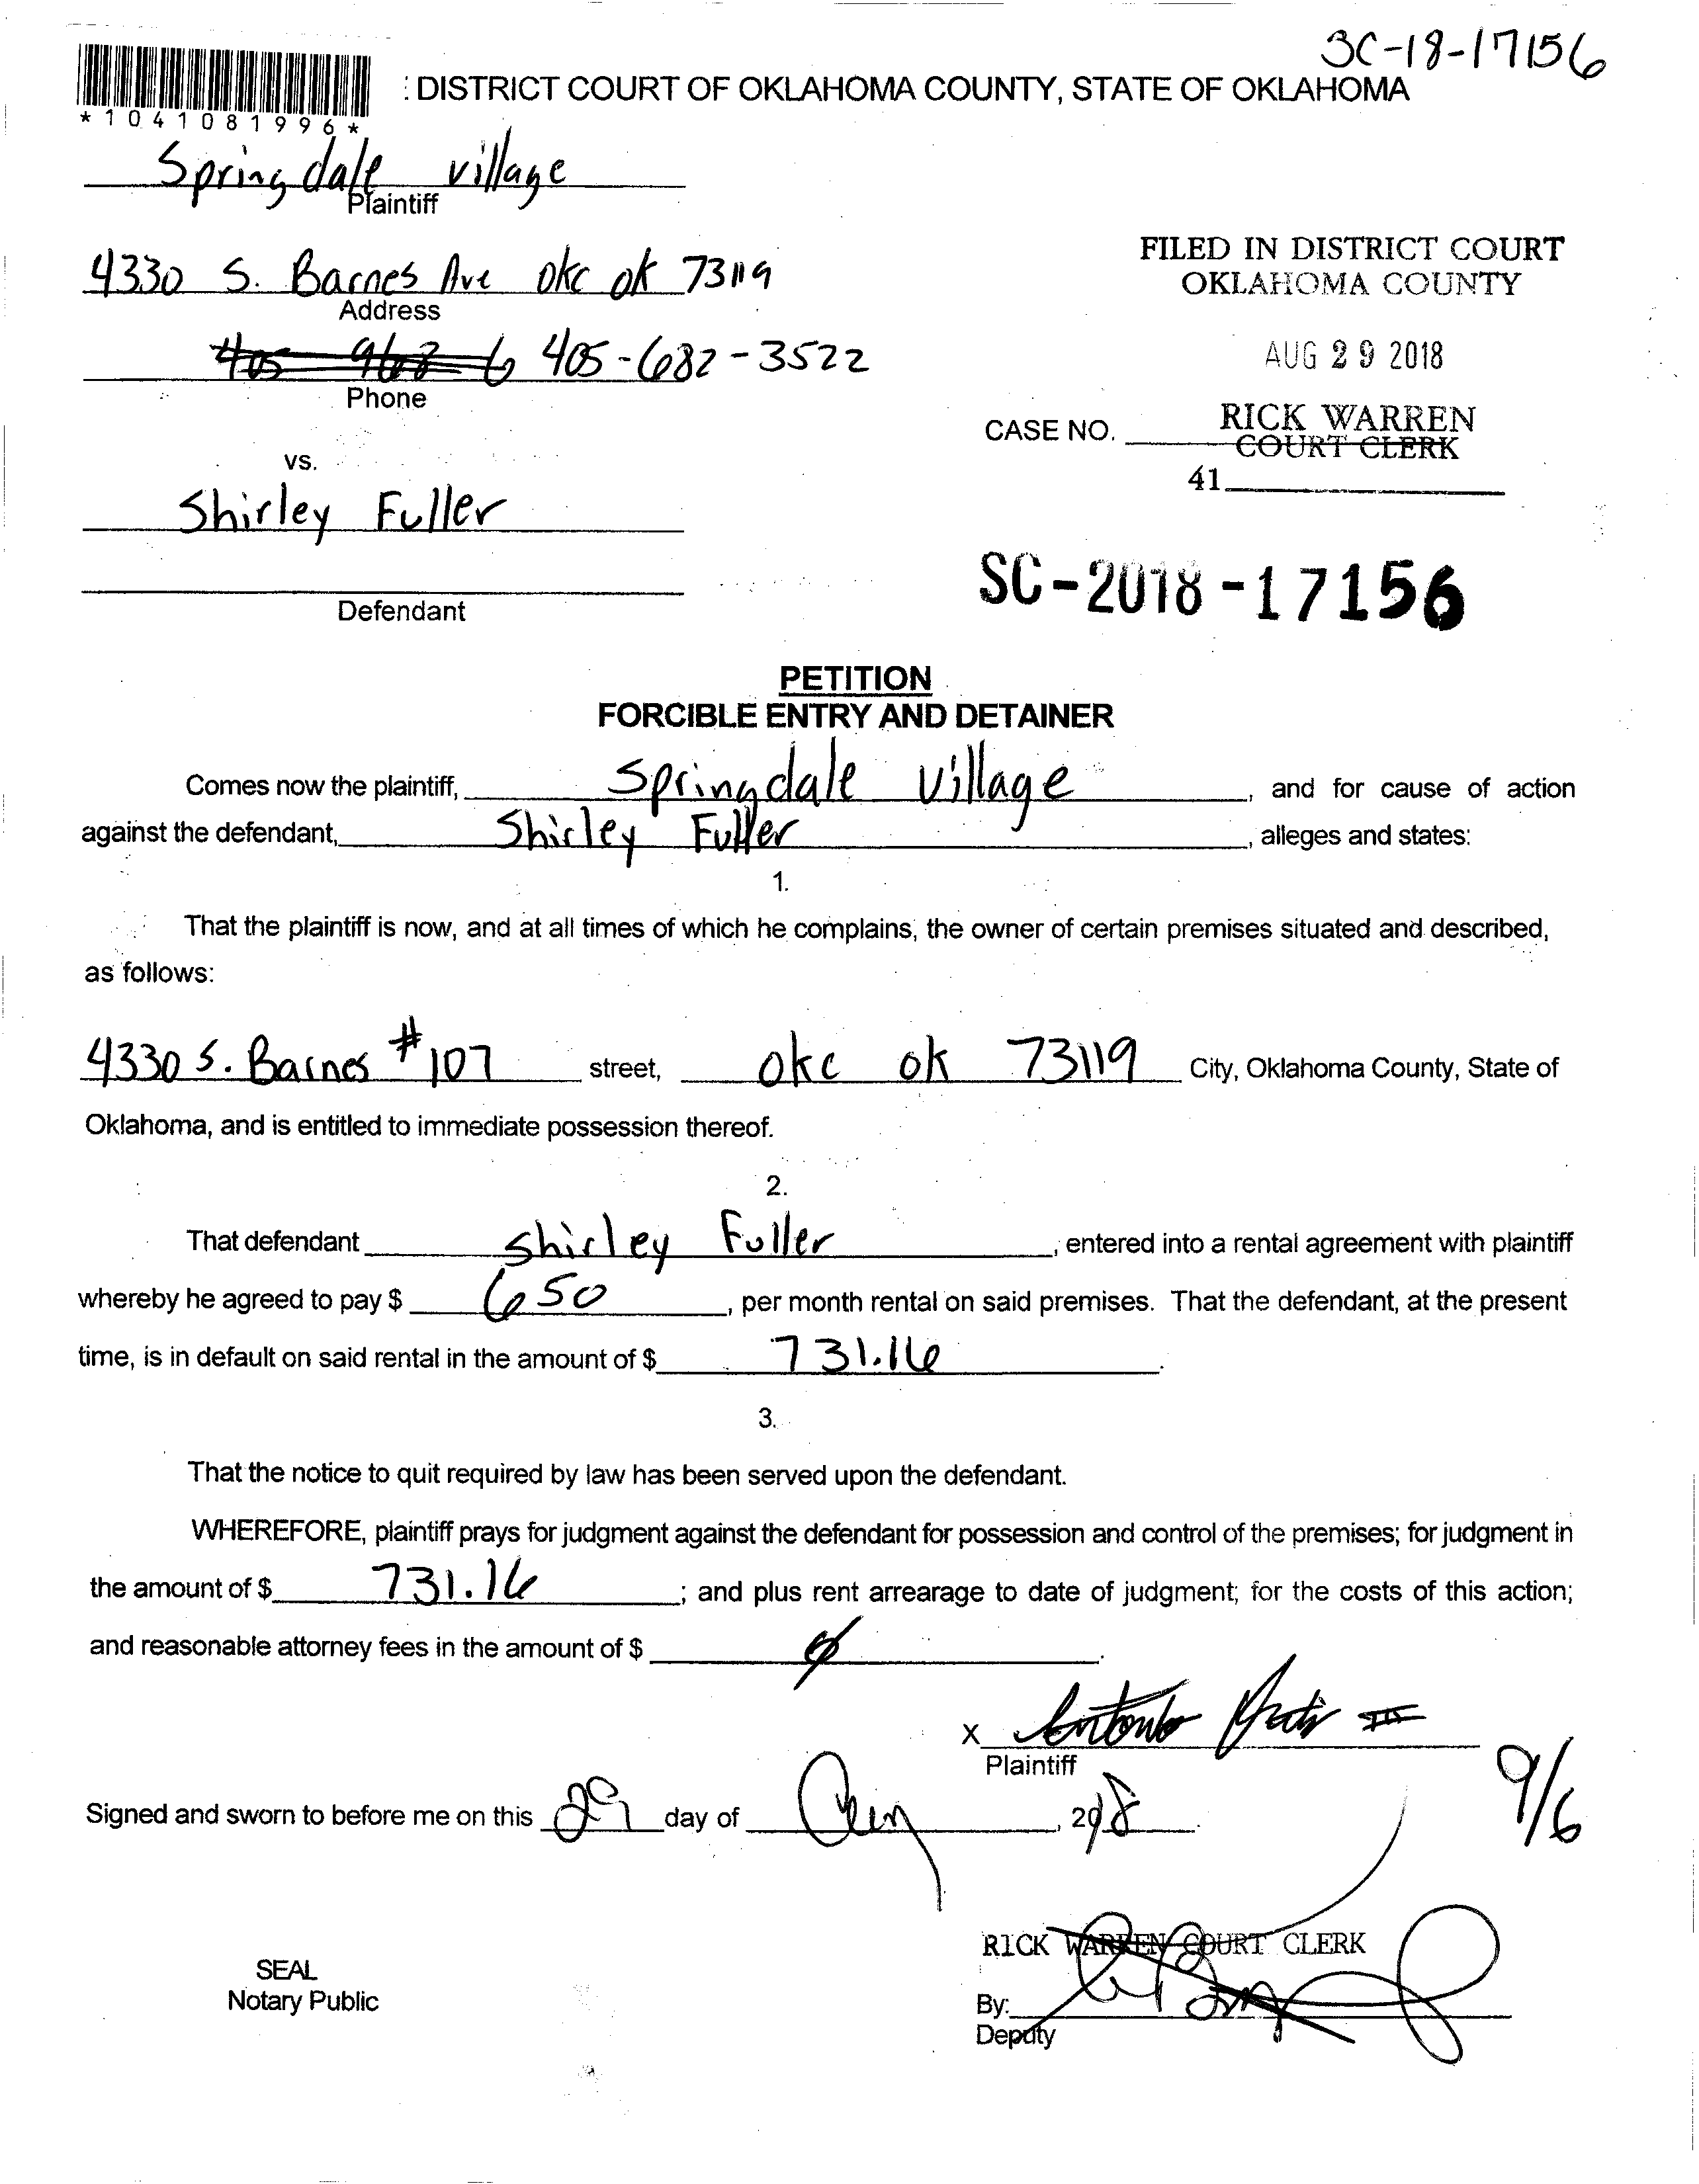 SC-18-17156
: DISTRICT COURT OF OKLAHOMA COUNTY, STATE OF OKLAHOMA
*1041081996*
Springdale village
Plaintiff
4330 S. Barnes Ave okc ok 73119
Address
405 968 6 405-682-3522
Phone
FILED IN DISTRICT COURT
OKLAHOMA COUNTY
AUG 29 2018
RICK WARREN
COURT CLERK
CASE NO.
41
vs.
Shirley Fuller
Defendant
SC-2018-17156
PETITION
FORCIBLE ENTRY AND DETAINER
Comes now the plaintiff, Springdale Village, and for cause of action
against the defendant, Shirley Fuller, alleges and states:
1.
That the plaintiff is now, and at all times of which he complains, the owner of certain premises situated and described,
as follows:
4330 S. Barnes #107 street, okc ok 73119 City, Oklahoma County, State of
Oklahoma, and is entitled to immediate possession thereof.
2.
That defendant Shirley Fuller, entered into a rental agreement with plaintiff
whereby he agreed to pay $ 650, per month rental on said premises. That the defendant, at the present
time, is in default on said rental in the amount of $ 731.16.
3.
That the notice to quit required by law has been served upon the defendant.
WHEREFORE, plaintiff prays for judgment against the defendant for possession and control of the premises; for judgment in
the amount of $ 731.16; and plus rent arrearage to date of judgment; for the costs of this action;
and reasonable attorney fees in the amount of $ .
X Antonio III
Plaintiff
9/6
Signed and sworn to before me on this 29 day of Aug, 2018.
RICK WARREN COURT CLERK
SEAL
Notary Public
By:
Deputy